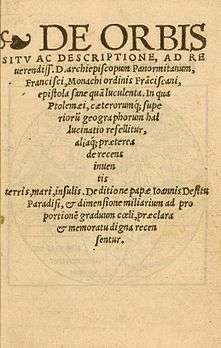 DE ORBIS
SITV AC DESCRIPTIONE, AD RE
uerendiss. D. archiepiscopum Panormitanum,
Francisci, Monachi ordinis Frāciscani,
epistola sane quã luculenta. In qua
Ptolemæi, cæterorumq; supe
riorū geographorum hal
lucinatio refellitur,
aliaq; præterea
de recens
inuen
tis
terris, mari, insulis. De ditione papæ Ioannis De situ
Paradisi, & dimensione miliarium ad pro
portionē graduum cœli, præclara
& memoratu digna recen
sentur.